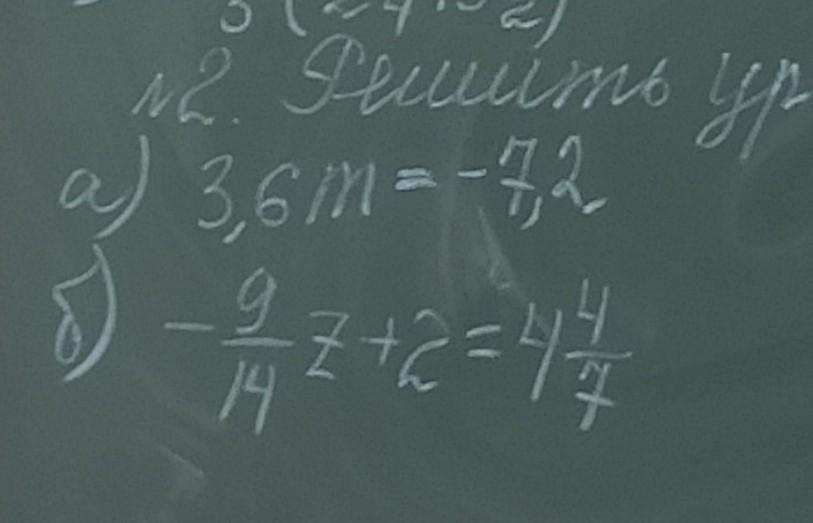 3 (
№2. Решить ур
а) 3,6m = -7,2
б) -9/14 z + 2 = 4 4/7